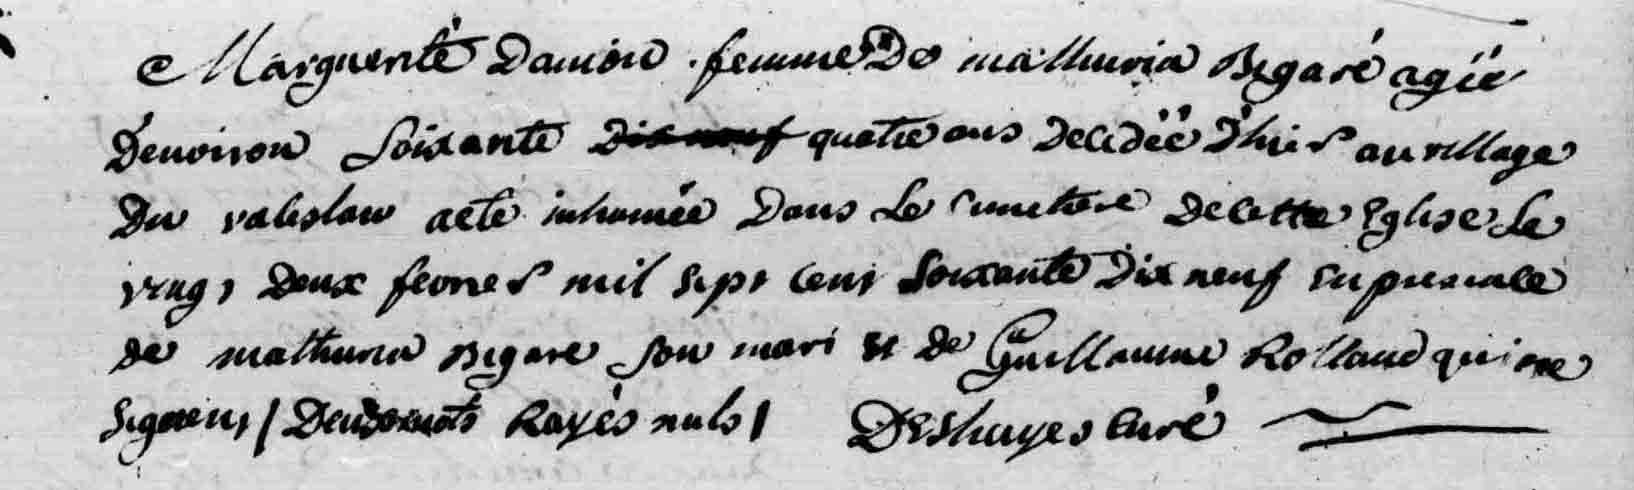 Marguerite Damion femme De mathurin Bigaré agée
Denviron Soixante Dix neuf quatre ans Decedée D'hier au village
Du valeslan a eté inhumée Dans Le cimetiere De cette Eglise Le
vingt Deux fevrier mil sept cent Soixante Dix neuf en presence
de mathurin Bigare son mari et de Guillaume Rolland qui ne
signent / Deux mots Rayés nuls / Deshayes Curé